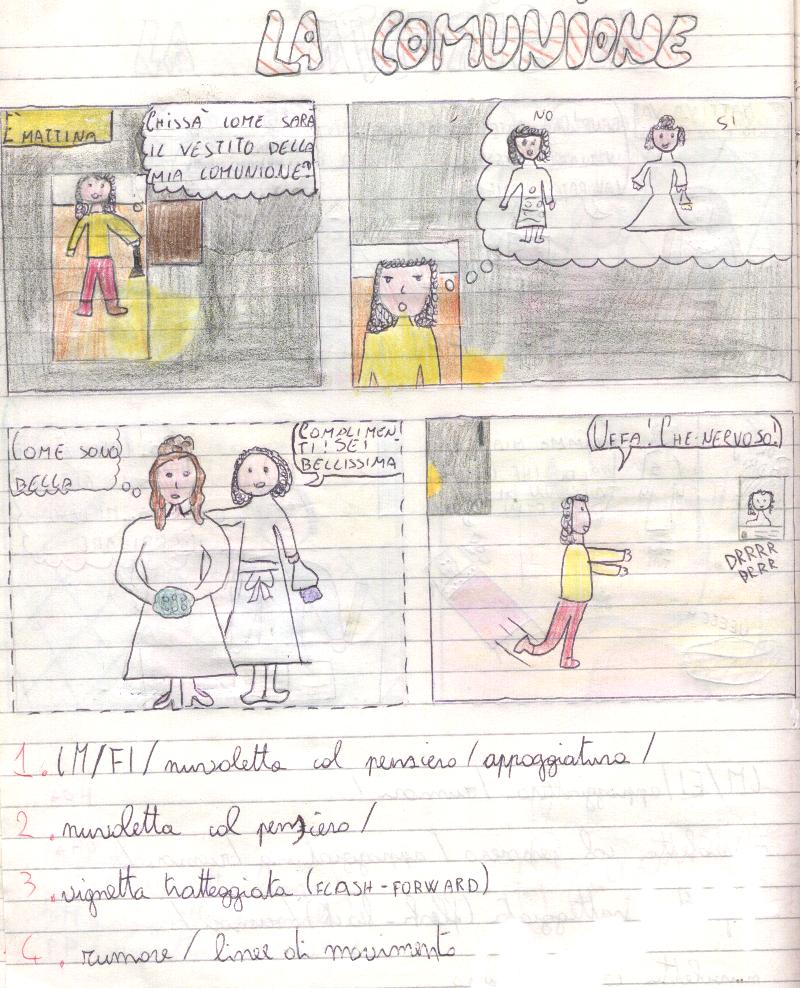 LA COMUNIONE
È MATTINA
CHISSÀ COME SARÀ
IL VESTITO DELLA
MIA COMUNIONE?
NO
SI
COME SONO
BELLA
COMPLIMEN
TI! SEI
BELLISSIMA
UFFA! CHE NERVOSO!
DRRRR
DRRR
1. CM/FI/ nuvoletta col pensiero / appoggiatura /
2. nuvoletta col pensiero /
3. vignetta tratteggiata (FLASH-FORWARD)
4. rumore / linee di movimento